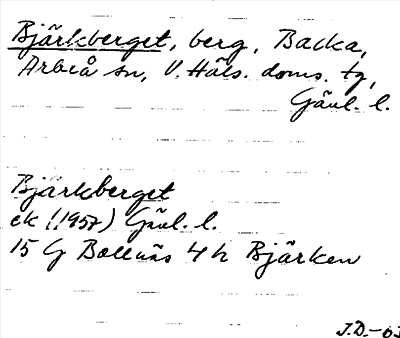 Bjärkberget, berg, Backa,
Arbrå sn, V. Häls. doms. tg,
Gävl. l.
Bjärkberget
ek (1957) Gävl. l.
15 G Bollnäs 4 h Bjärken
J.D.-63